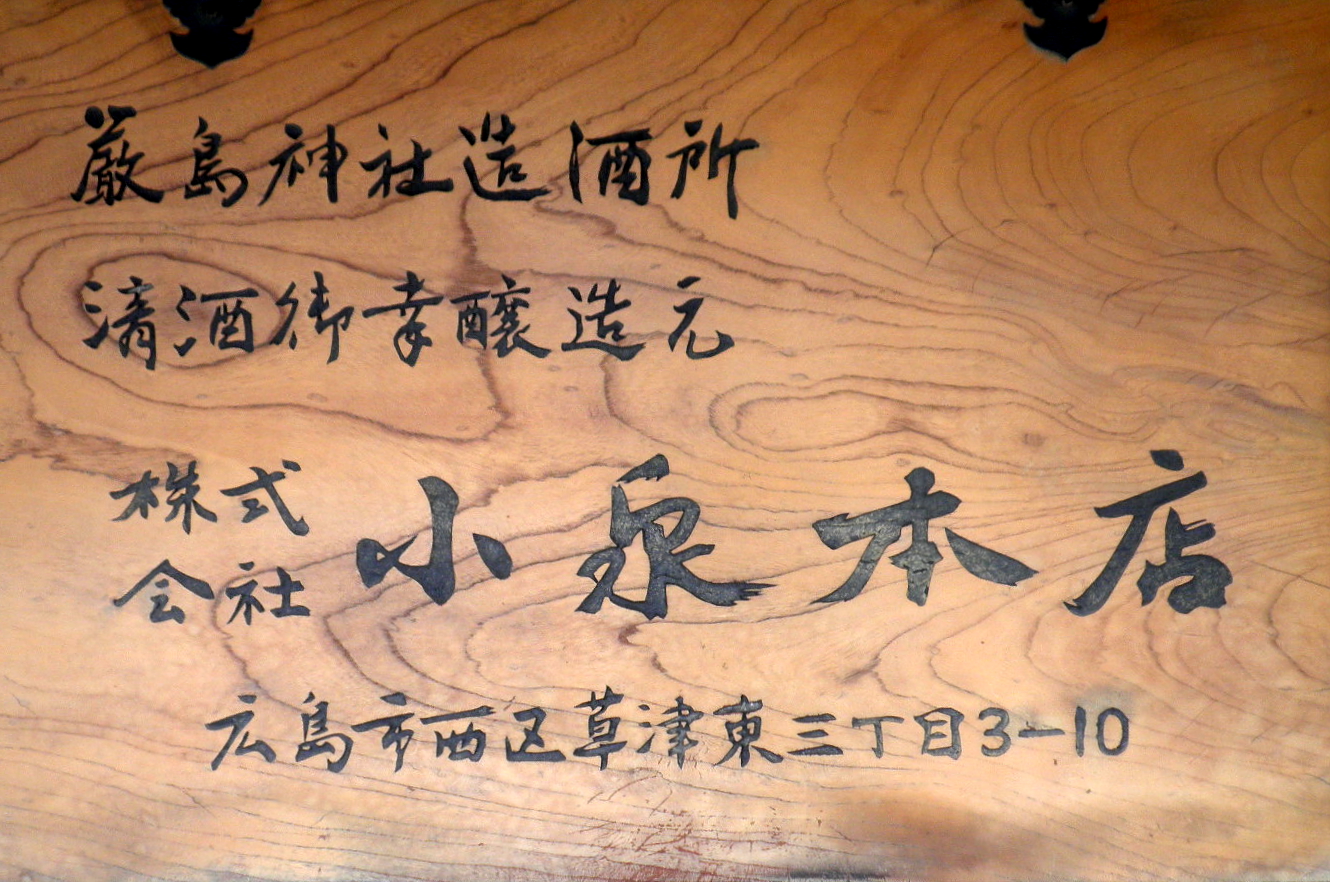 厳島神社造酒所
清酒御幸醸造元
株式会社 小泉本店
広島市西区草津東三丁目3-10